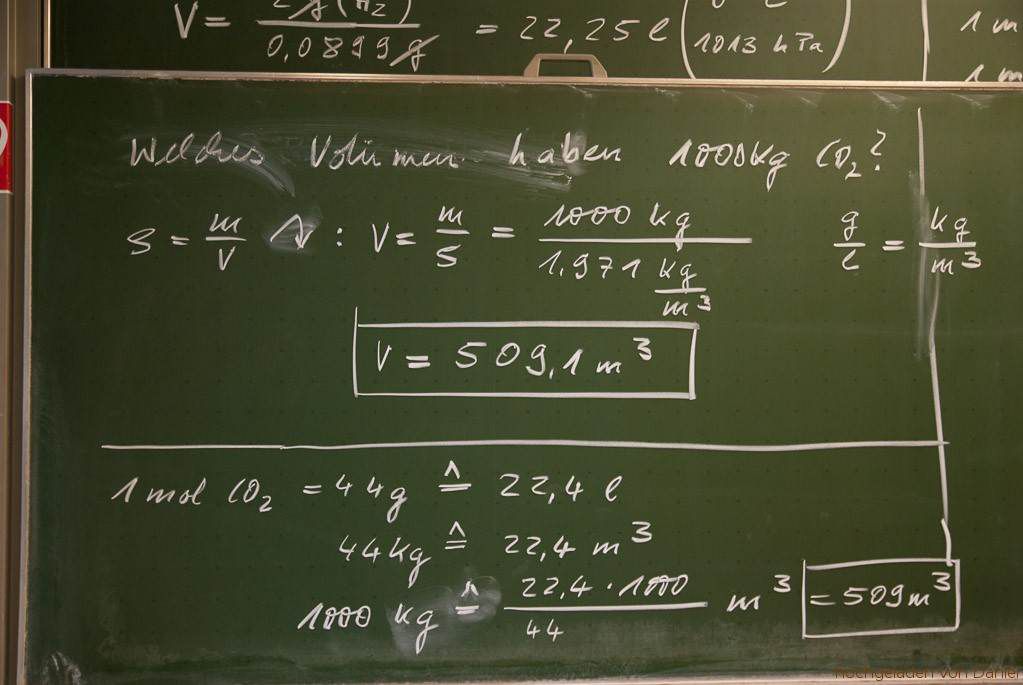 V = 2g (H2) / 0,0899 g = 22,25 l ( 1013 hPa )
1 m
1 m
Welches Volumen haben 1000kg CO₂?
S = m/V : V = m/S = 1000 kg / 1.971 kg/m³
g/l = kg/m³
V = 509,1 m³
1 mol CO₂ = 44g ≙ 22,4 l
44kg ≙ 22,4 m³
1000 kg ≙ 22,4 · 1000 / 44 m³ = 509m³
Hochgeladen von Daniel